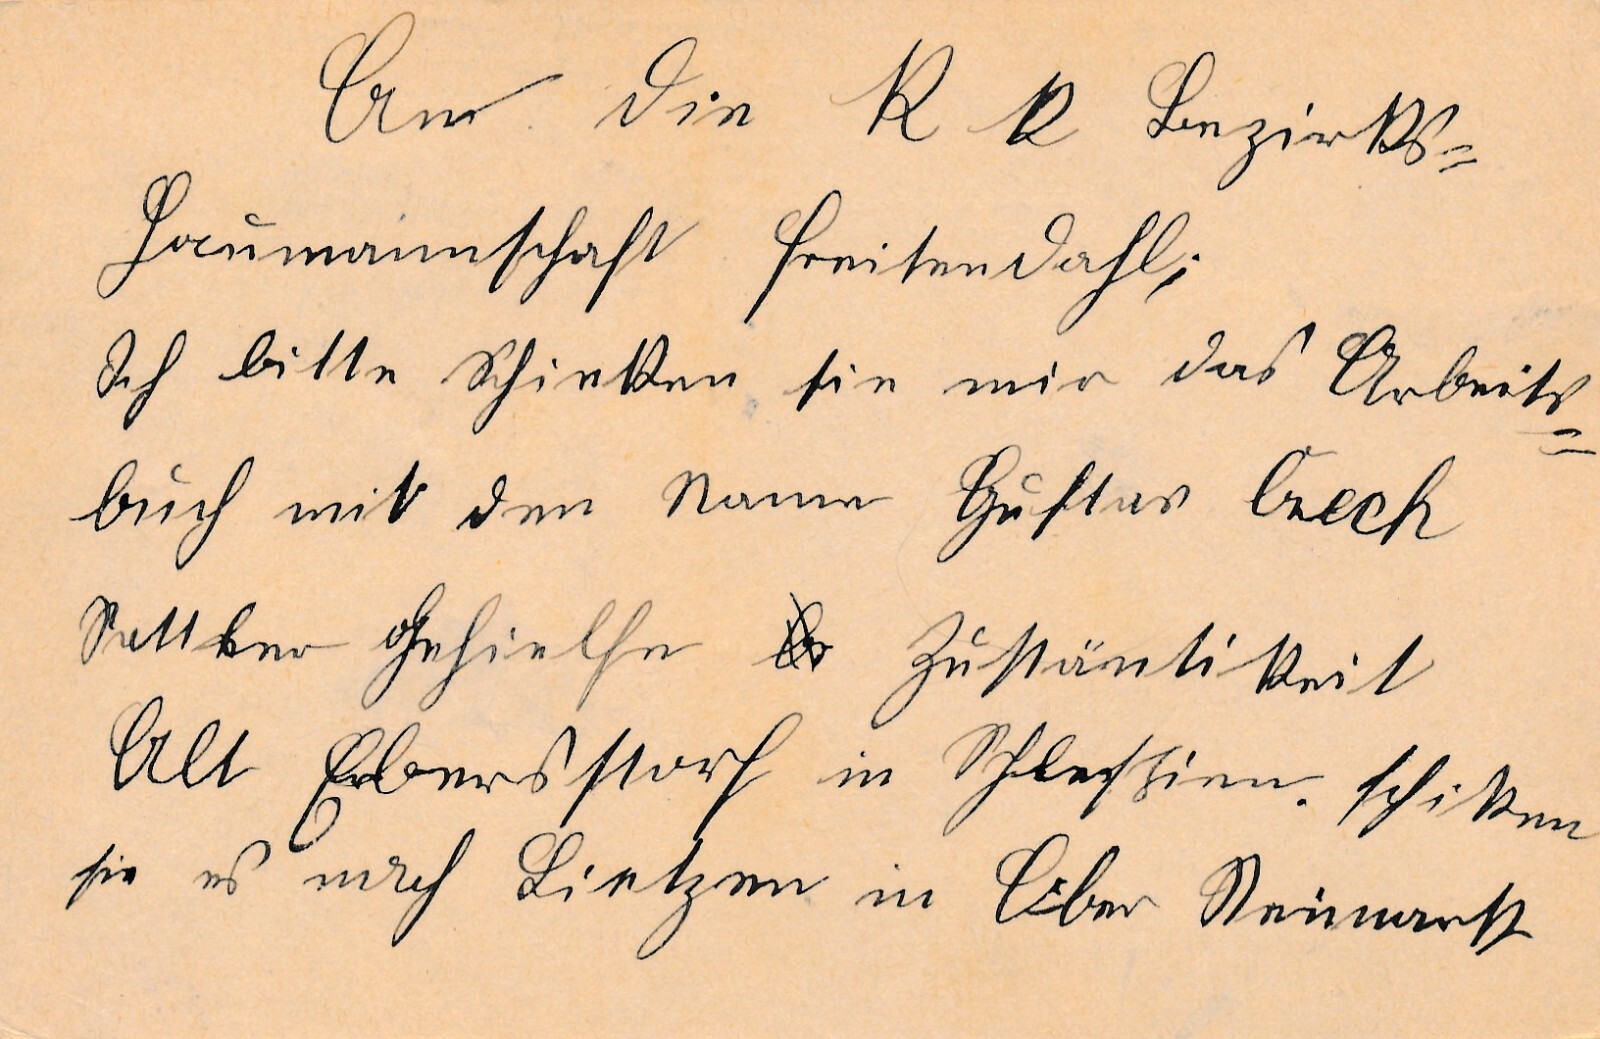 An die K K Bezirks=
Haumannschaft Freitendahl;
Ich bitte Schieken sie mir das Arbeits=
buch mit den Name Gustav Czech
Sattler Gehielfe Zustäntikeit
Alt Erbersstorf in Schlessien. schiken
sie es nach Lietzen in Ober Steimark